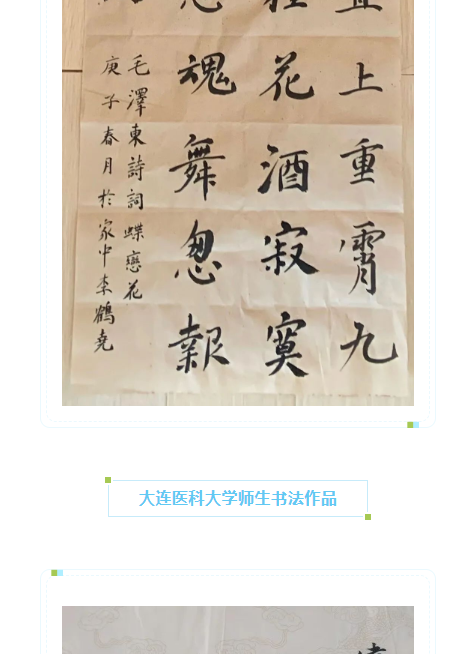 直上重霄九
桂花酒寂寞
忠魂舞忽報
毛澤東詩詞蝶戀花
庚子春月於家中李鶴堯
大连医科大学师生书法作品